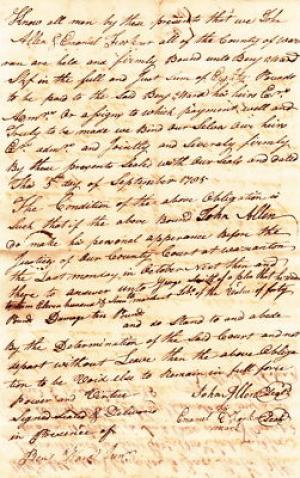 Know all men by these presents that we John
Allen & Emanuel of the County of
are held and firmly Bound unto Benj Ward
in the full and Just Sum of Eighty Pounds
to be paid to the Said Benj Ward his heirs
Or assigns to which payment well and
truly to be made we Bind our Selves Our heirs
Jointly and Severaly firmly
By these presents Sealed with our Seals and dated
The 5 day of September
The Condition of the above Obligation is
Such that if the above Bound John Allen
do make his personal apperance before the
Justices of Our County Court at
the Last monday in October next then and
there to answer unto of a plea that he
of the Value of forty
Pound Damage ten Pound
and do Stand to and abide
By the Determination of the Said Court and not
depart without Leave then the above Obliga
tion to be Void else to Remain in full force
power and Virtue
John Allen
Signed Sealed & Delivered
Emanuel
in Presence of
mark
Benj Ward Junr